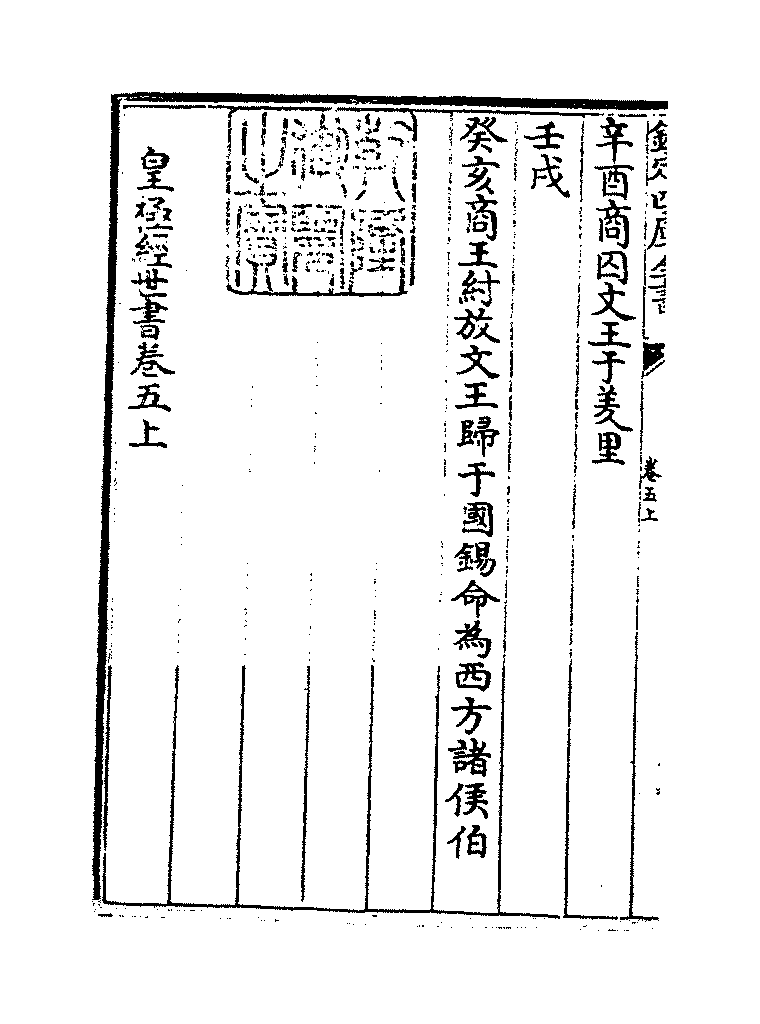 欽定四庫全書
卷五上
辛酉商囚文王于羑里
壬戌
癸亥商王紂放文王歸于國錫命為西方諸侯伯
乾隆御覽之寶
皇極經世書卷五上